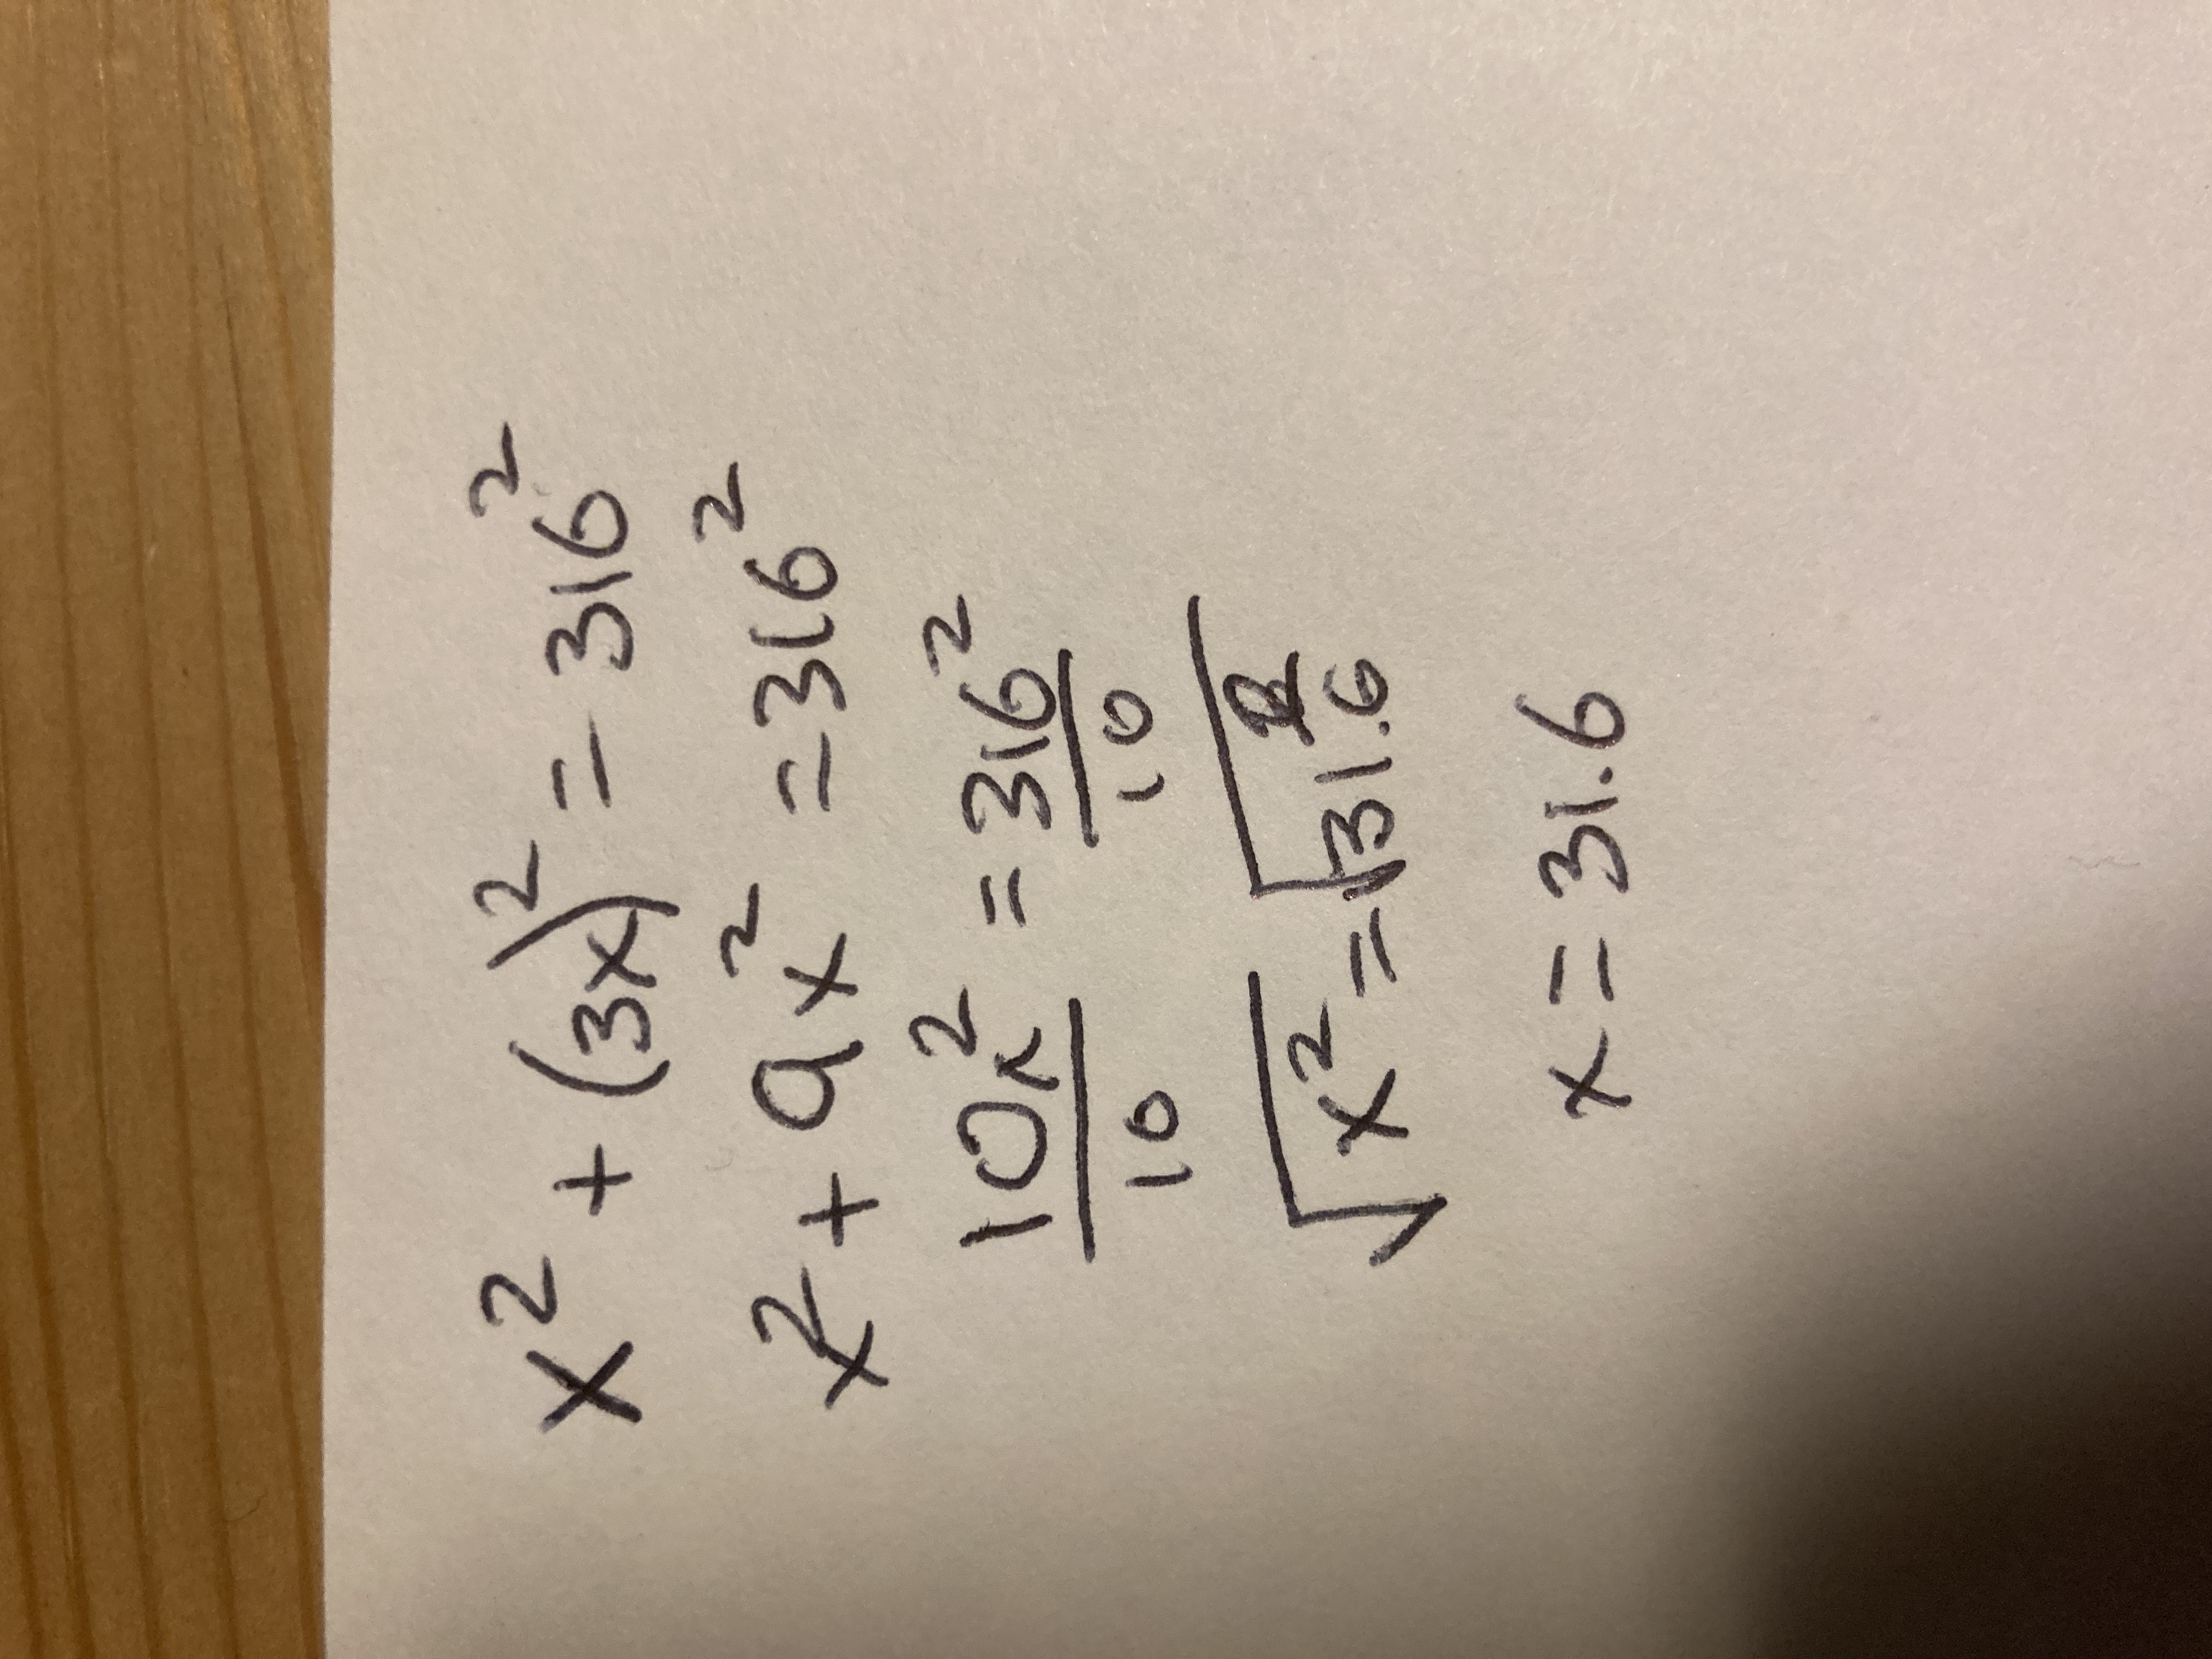 x² + (3x)² = 316²
x² + 9x² = 316²
10x²/10 = 316²/10
√x² = √31.6²
x = 31.6